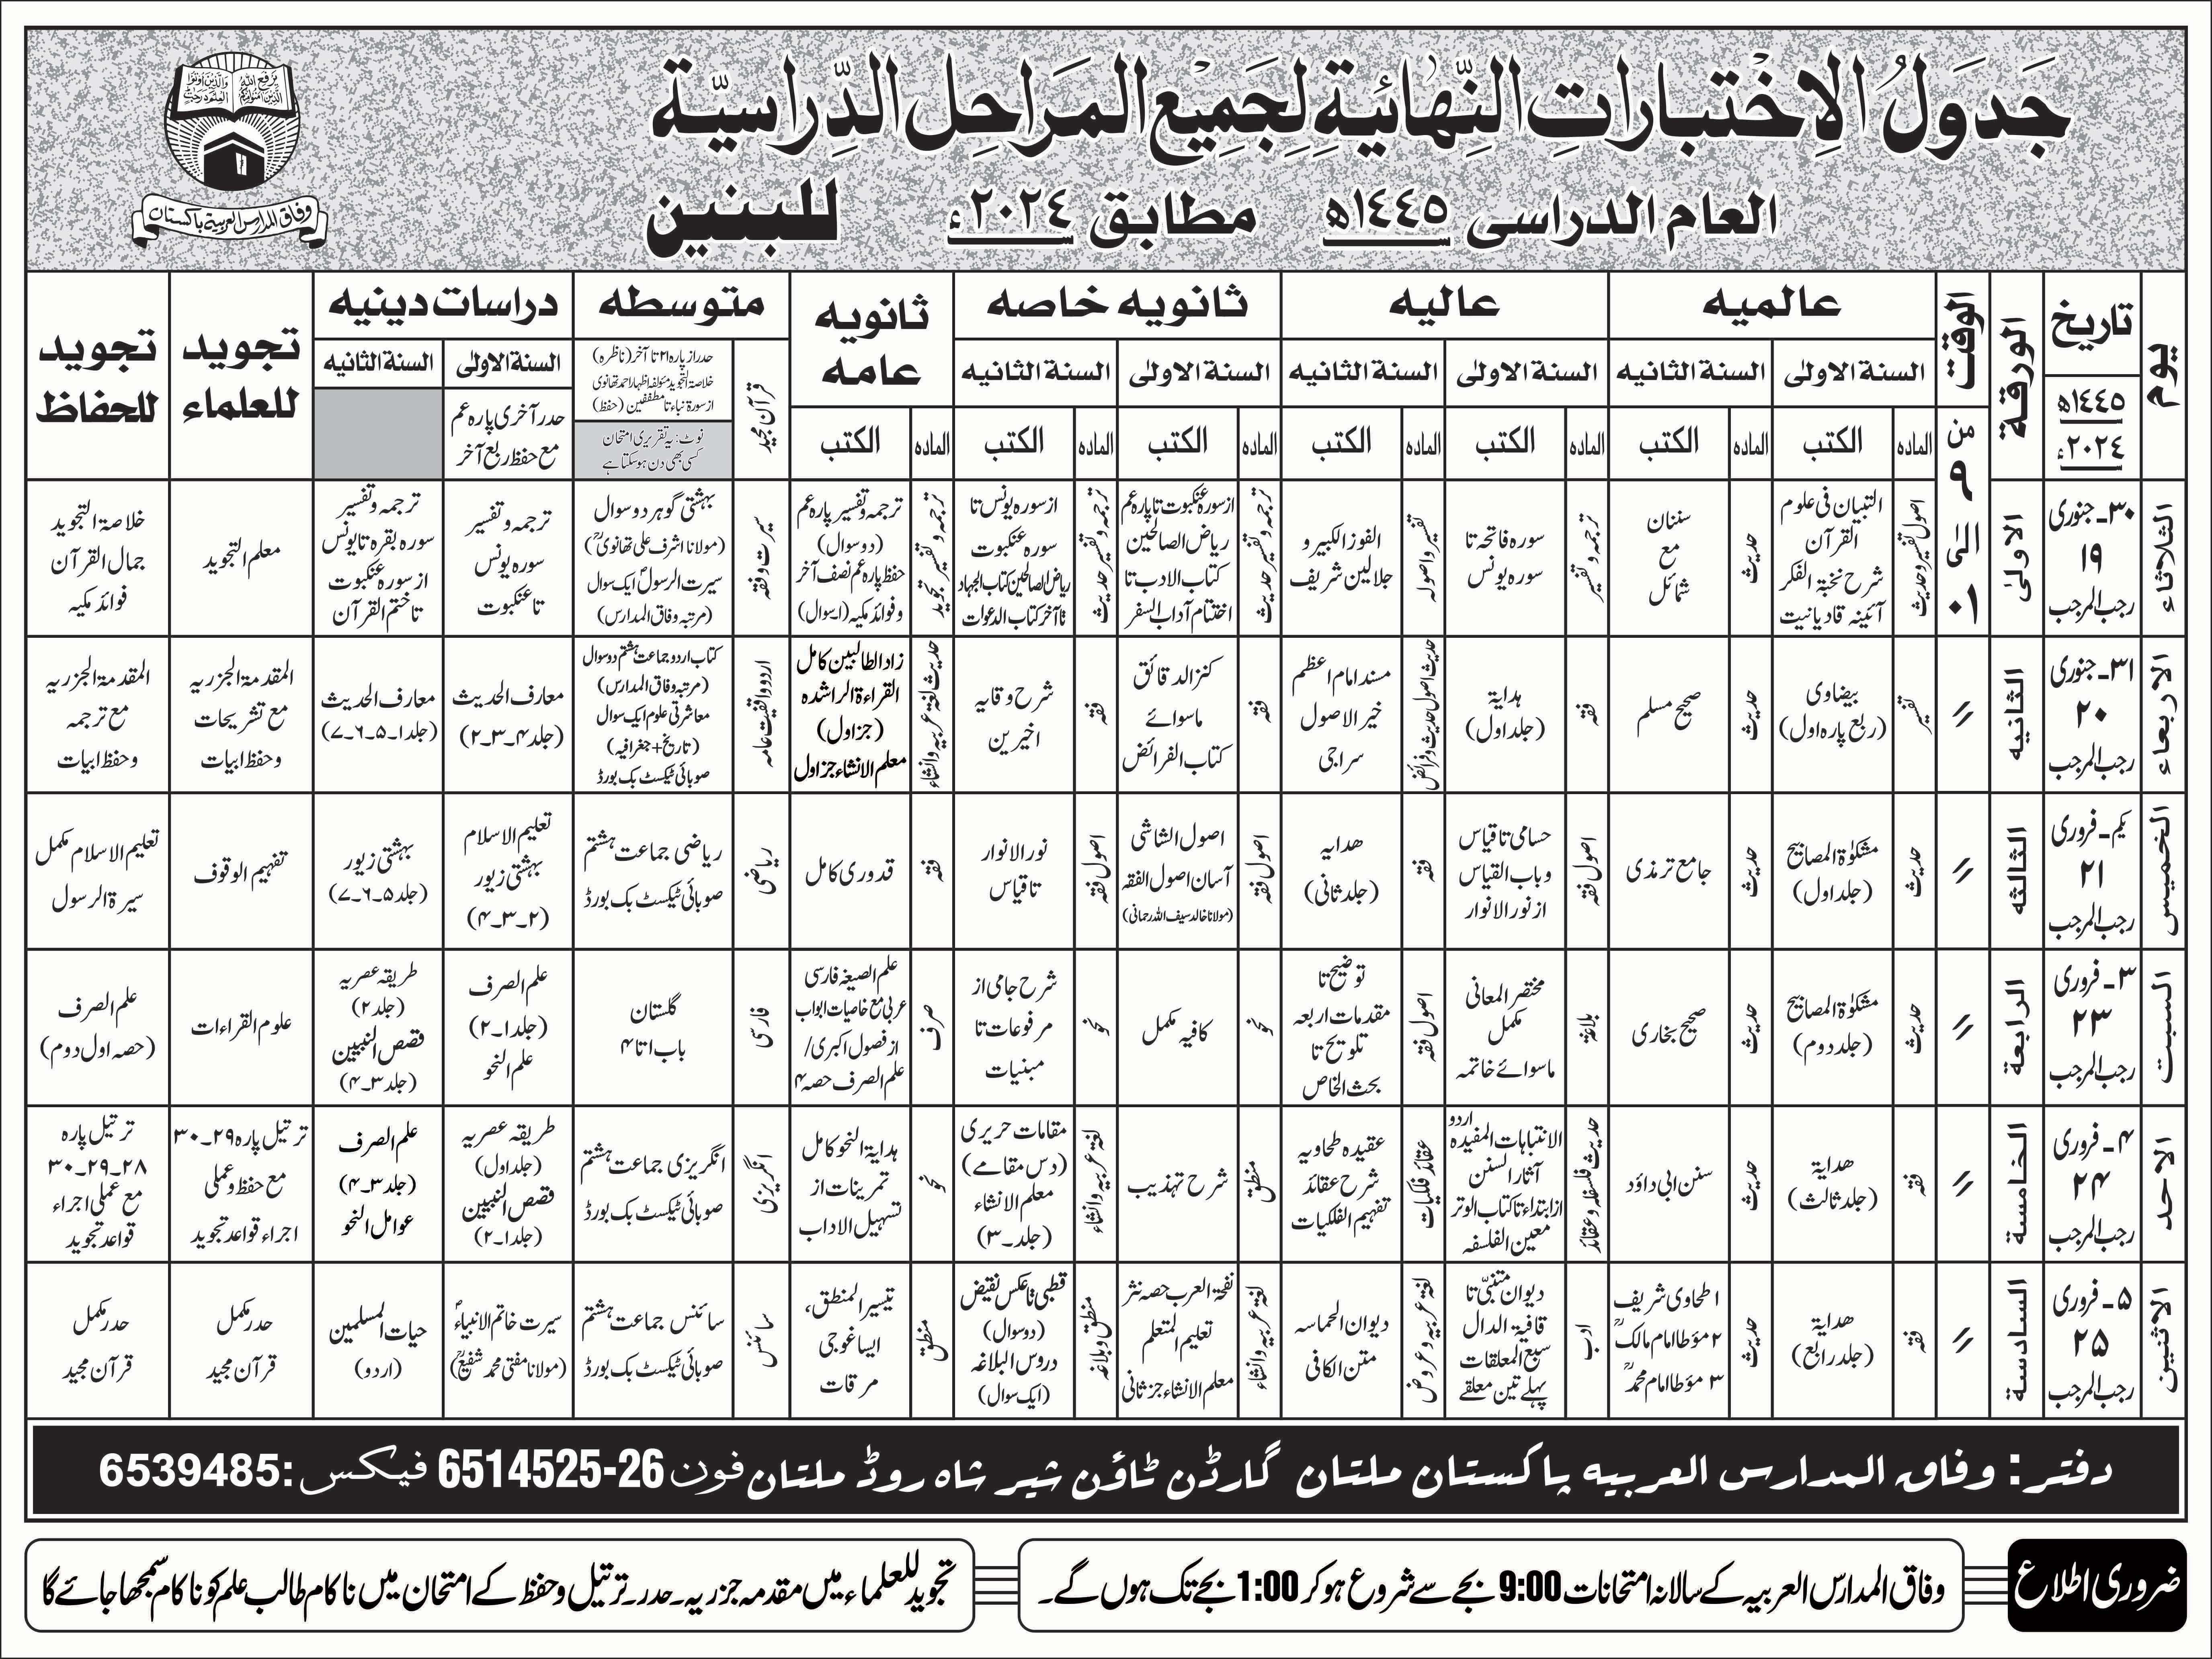 جَدوَلُ الِاخْتبارَاتِ النِّهَائيَةِ لِجَمِيْعِ المَرَاحِلِ الدِّراسيَّة
العام الدراسی ١٤٤٥ھ مطابق ٢٠٢٤ء للبنین
وفاق المدارس العربیۃ پاکستان
یوم
تاریخ
١٤٤٥ھ
٢٠٢٤ء
الورقة
الوقت
من ٩ الی ١٠
عالمیه
عالیه
ثانویه خاصه
ثانویه عامه
متوسطه
دراسات دینیه
تجوید للعلماء
تجوید للحفاظ
السنة الاولیٰ
السنة الثانیه
السنة الاولیٰ
السنة الثانیه
السنة الاولیٰ
السنة الثانیه
السنة الاولیٰ
السنة الثانیه
الماده
الکتب
الماده
الکتب
الماده
الکتب
الماده
الکتب
الماده
الکتب
الماده
الکتب
الماده
الکتب
قرآن مجید
حدر از پارہ ۲۱ تا آخر (ناظرہ)
خلاصۃ التجوید مؤلفہ اظہار احمد تھانوی
از سورۃ نباء تا مطففین (حفظ)
نوٹ: یہ تقریری امتحان
کسی بھی دن ہوسکتا ہے
حدر آخری پارہ عم
مع حفظ ربع آخر
الثلاثاء
۳۰۔جنوری
۱۹
رجب المرجب
الاولیٰ
اصول تفسیر وحدیث
التبیان فی علوم
القرآن
شرح نخبۃ الفکر
آئینہ قادیانیت
حدیث
سننان
مع
شمائل
ترجمہ و تفسیر
سورہ فاتحہ تا
سورہ یونس
تفسیر و اصولہ
الفوز الکبیر و
جلالین شریف
ترجمہ و تفسیر حدیث
از سورہ عنکبوت تا پارہ عم
ریاض الصالحین
کتاب الادب تا
اختتام آداب السفر
ترجمہ و تفسیر حدیث
از سورہ یونس تا
سورہ عنکبوت
ریاض الصالحین کتاب الجہاد
تا آخر کتاب الدعوات
ترجمہ و تفسیر تجوید
ترجمہ و تفسیر پارہ عم
(دو سوال)
حفظ پارہ عم نصف آخر
و فوائد مکیہ (۱سوال)
سیرت و فقہ
بہشتی گوہر دو سوال
(مولانا اشرف علی تھانویؒ)
سیرت الرسولؐ ایک سوال
(مرتبہ وفاق المدارس)
ترجمہ و تفسیر
سورہ یونس
تا عنکبوت
ترجمہ و تفسیر
سورہ بقرہ تا یونس
از سورہ عنکبوت
تا ختم القرآن
معلم التجوید
خلاصۃ التجوید
جمال القرآن
فوائد مکیہ
الاربعاء
۳۱۔جنوری
۲۰
رجب المرجب
الثانیه
//
تفسیر
بیضاوی
(ربع پارہ اول)
حدیث
صحیح مسلم
فقہ
ہدایۃ
(جلد اول)
حدیث اصول حدیث و فرائض
مسند امام اعظم
خیر الاصول
سراجی
فقہ
کنز الدقائق
ماسوائے
کتاب الفرائض
فقہ
شرح وقایہ
اخیرین
حدیث لغۃ عربیہ و انشاء
زاد الطالبین کامل
القراءۃ الراشدہ
(جز اول)
معلم الانشاء جز اول
اردو واقفیت عامہ
کتاب اردو جماعت ہشتم دو سوال
(مرتبہ وفاق المدارس)
معاشرتی علوم ایک سوال
(تاریخ + جغرافیہ)
صوبائی ٹیکسٹ بک بورڈ
معارف الحدیث
(جلد ۴۔۳۔۲)
معارف الحدیث
(جلد ۱۔۵۔۶۔۷)
المقدمۃ الجزریہ
مع تشریحات
و حفظ ابیات
المقدمۃ الجزریہ
مع ترجمہ
و حفظ ابیات
الخمیس
یکم۔فروری
۲۱
رجب المرجب
الثالثه
//
حدیث
مشکوٰۃ المصابیح
(جلد اول)
حدیث
جامع ترمذی
اصول فقہ
حسامی تا قیاس
و باب القیاس
از نور الانوار
فقہ
ھدایہ
(جلد ثانی)
اصول فقہ
اصول الشاشی
آسان اصول الفقہ
(مولانا خالد سیف اللہ رحمانی)
اصول فقہ
نور الانوار
تا قیاس
فقہ
قدوری کامل
ریاضی
ریاضی جماعت ہشتم
صوبائی ٹیکسٹ بک بورڈ
تعلیم الاسلام
بہشتی زیور
(۲۔۳۔۴)
بہشتی زیور
(جلد ۵۔۶۔۷)
تفہیم الوقوف
تعلیم الاسلام مکمل
سیرۃ الرسول
السبت
۳۔فروری
۲۳
رجب المرجب
الرابعة
//
حدیث
مشکوٰۃ المصابیح
(جلد دوم)
حدیث
صحیح بخاری
بلاغۃ
مختصر المعانی
مکمل
ماسوائے خاتمہ
اصول فقہ
توضیح تا
مقدمات اربعہ
تلویح تا
بحث الخاص
نحو
کافیہ مکمل
نحو
شرح جامی از
مرفوعات تا
مبنیات
صرف
علم الصیغہ فارسی
عربی مع خاصیات ابواب
از فصول اکبری/
علم الصرف حصہ ۴
فارسی
گلستان
باب ۱ تا ۴
علم الصرف
(جلد ۱۔۲)
علم النحو
طریقہ عصریہ
(جلد ۲)
قصص النبیین
(جلد ۳۔۴)
علوم القراءات
علم الصرف
(حصہ اول دوم)
الاحد
۴۔فروری
۲۴
رجب المرجب
الخامسة
//
فقہ
ھدایۃ
(جلد ثالث)
حدیث
سنن ابی داؤد
حدیث فلسفہ و عقائد
الانتباہات المفیدہ اردو
آثار السنن
از ابتداء تا کتاب الوتر
معین الفلسفہ
عقائد فلکیات
عقیدہ طحاویہ
شرح عقائد
تفہیم الفلکیات
منطق
شرح تہذیب
لغۃ عربیہ و انشاء
مقامات حریری
(دس مقامے)
معلم الانشاء
(جلد۔۳)
نحو
ہدایۃ النحو کامل
تمرینات از
تسہیل الاداب
انگریزی
انگریزی جماعت ہشتم
صوبائی ٹیکسٹ بک بورڈ
طریقہ عصریہ
(جلد اول)
قصص النبیین
(جلد ۱۔۲)
علم الصرف
(جلد ۳۔۴)
عوامل النحو
ترتیل پارہ ۲۹۔۳۰
مع حفظ و عملی
اجراء قواعد تجوید
ترتیل پارہ
۲۸۔۲۹۔۳۰
مع عملی اجراء
قواعد تجوید
الاثنین
۵۔فروری
۲۵
رجب المرجب
السادسة
//
فقہ
ھدایۃ
(جلد رابع)
حدیث
۱ طحاوی شریف
۲ مؤطا امام مالکؒ
۳ مؤطا امام محمدؒ
ادب
دیوان متنبّی تا
قافیۃ الدال
سبع المعلقات
پہلے تین معلقے
لغۃ عربیہ و عروض
دیوان الحماسہ
متن الکافی
لغۃ عربیہ و انشاء
نفحۃ العرب حصہ نثر
تعلیم المتعلم
معلم الانشاء جز ثانی
منطق و بلاغہ
قطبی تا عکس نقیض
(دو سوال)
دروس البلاغہ
(ایک سوال)
منطق
تیسیر المنطق،
ایساغوجی
مرقات
سائنس
سائنس جماعت ہشتم
صوبائی ٹیکسٹ بک بورڈ
سیرت خاتم الانبیاءؐ
(مولانا مفتی محمد شفیعؒ)
حیات المسلمین
(اردو)
حدر مکمل
قرآن مجید
حدر مکمل
قرآن مجید
دفتر: وفاق المدارس العربیہ پاکستان ملتان گارڈن ٹاؤن شیر شاہ روڈ ملتان فون 6514525-26 فیکس: 6539485
ضروری اطلاع
وفاق المدارس العربیہ کے سالانہ امتحانات 9:00 بجے سے شروع ہو کر 1:00 بجے تک ہوں گے۔
تجوید للعلماء میں مقدمہ جزریہ۔حدر۔ترتیل و حفظ کے امتحان میں ناکام طالب علم کو ناکام سمجھا جائے گا